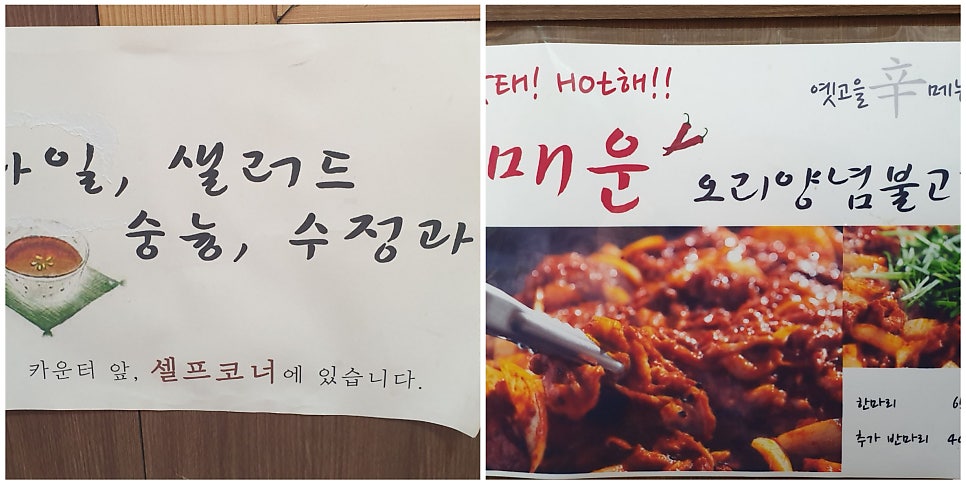 일, 샐러드
숭늉, 수정과
카운터 앞, 셀프코너에 있습니다.
태! Hot해!!
옛고을 辛 메뉴
매운
오리양념불고
한마리
추가 반마리